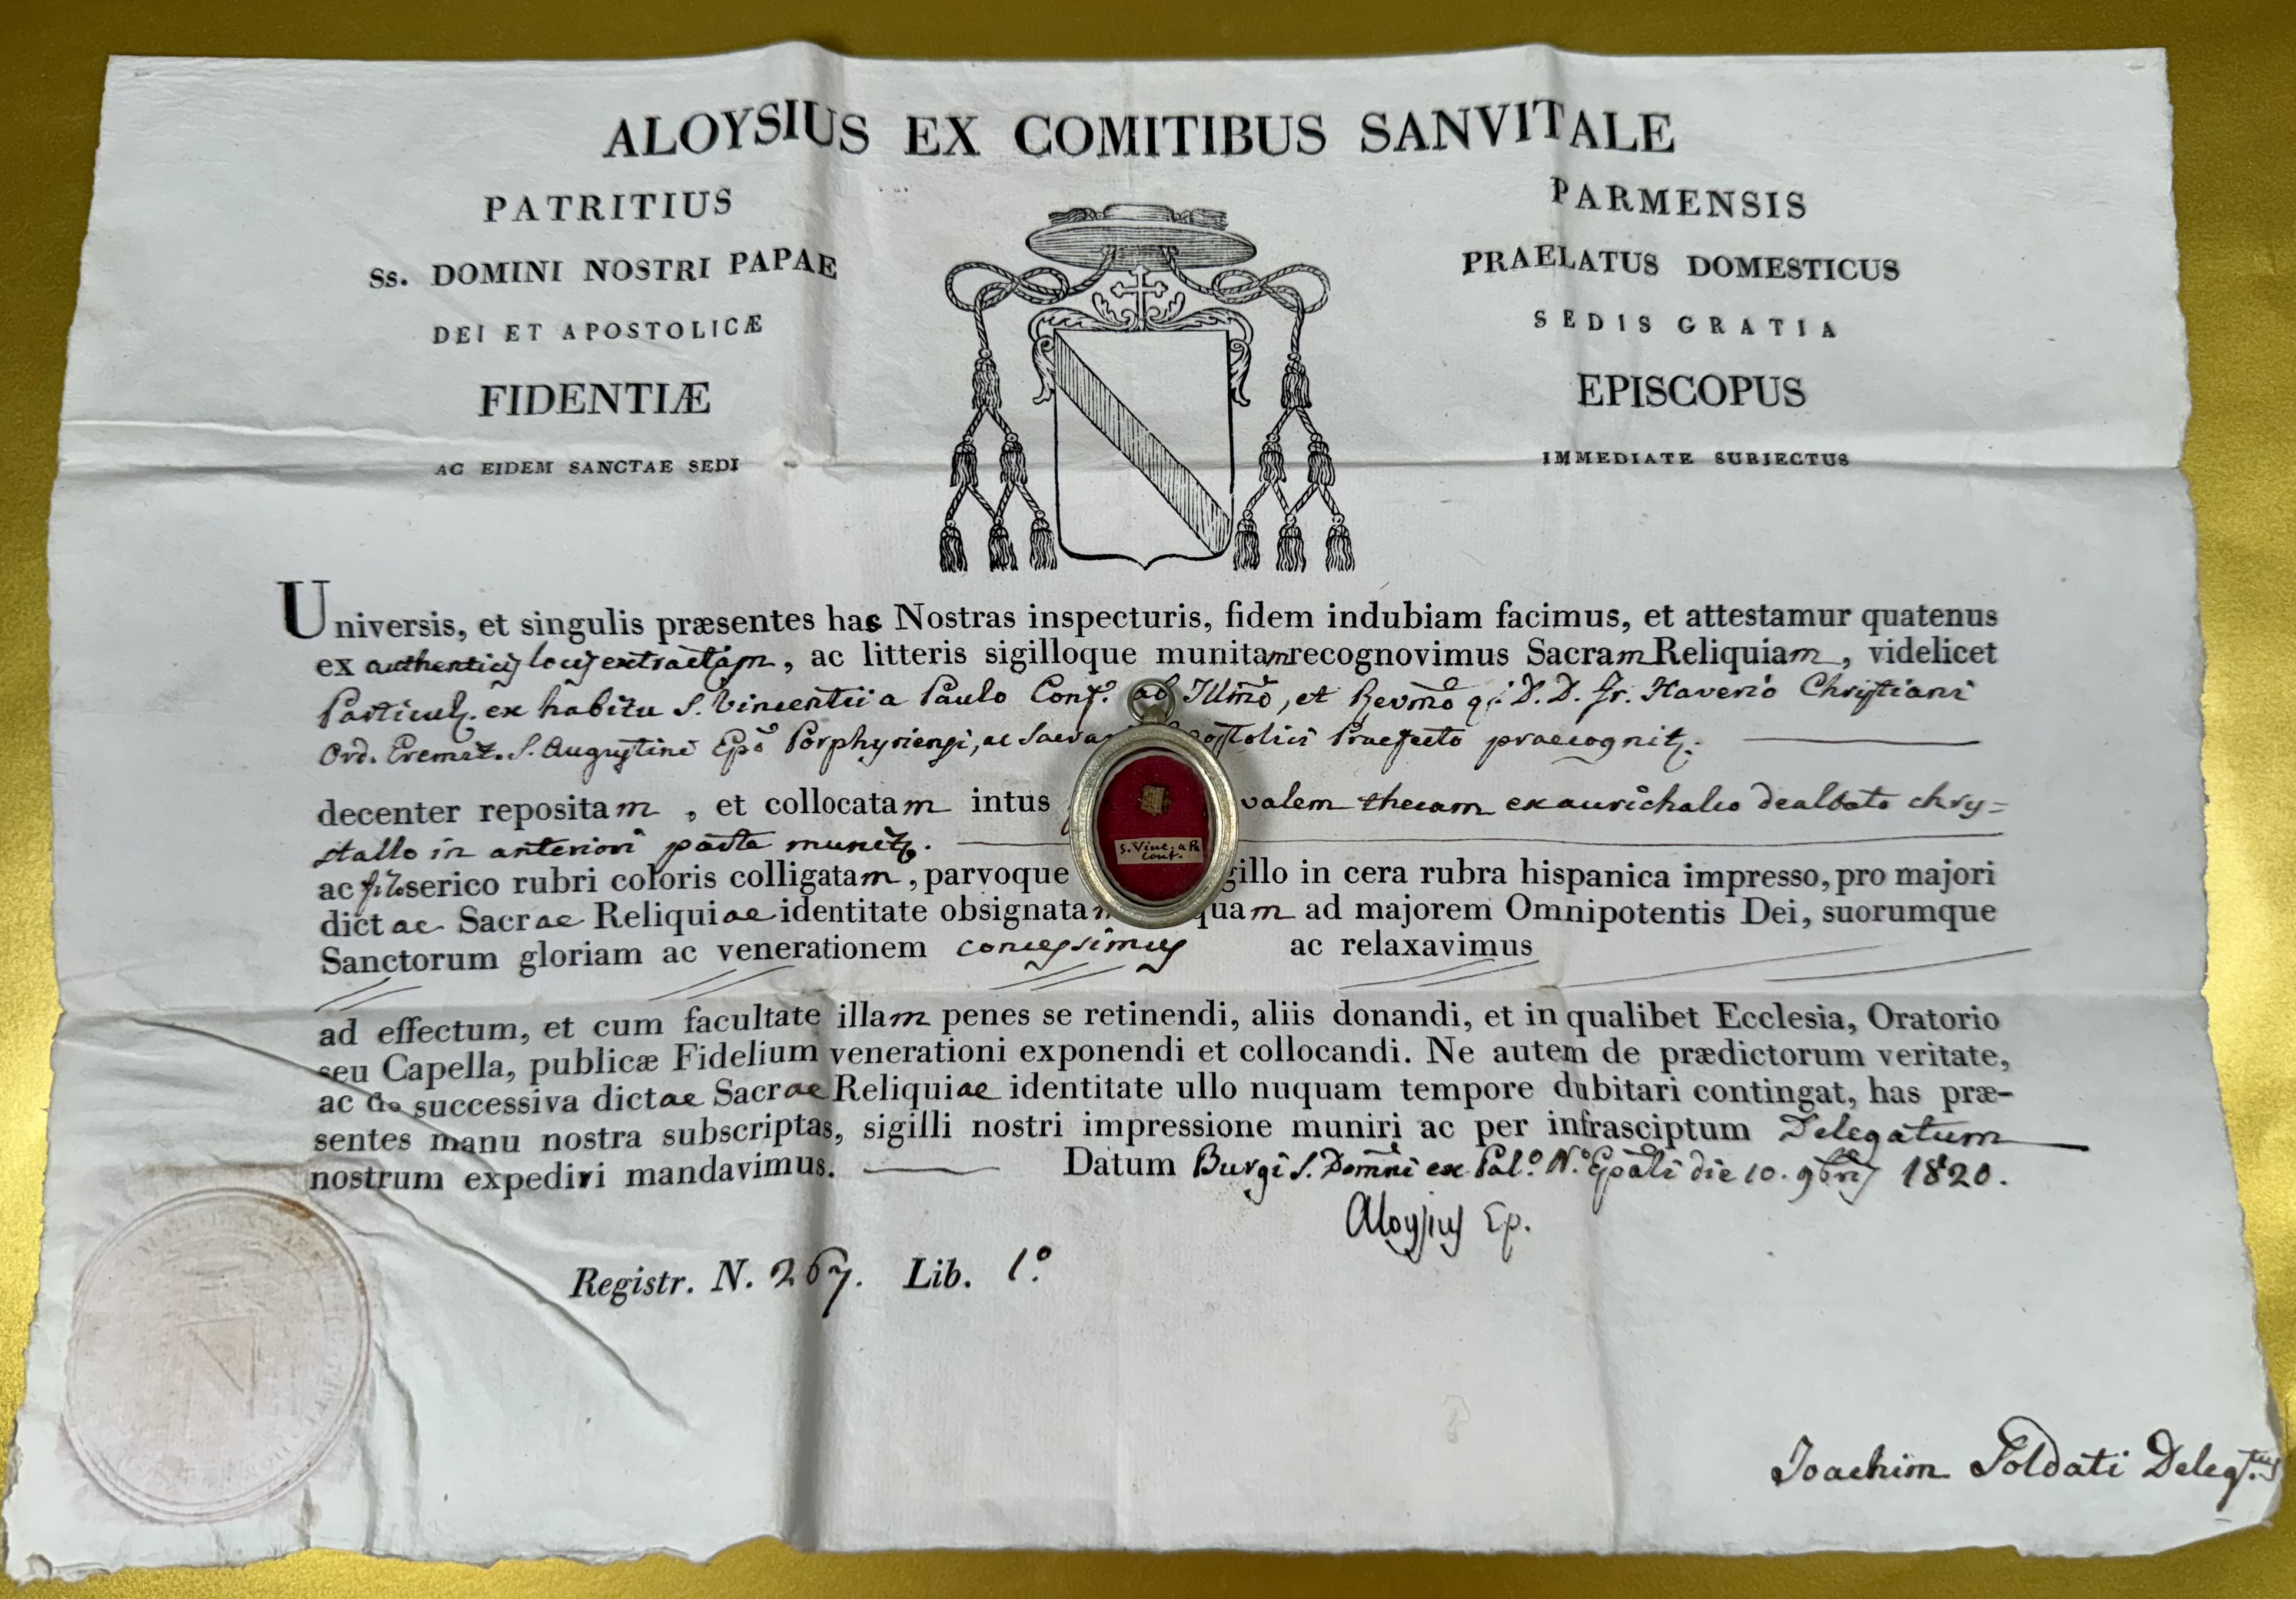 ALOYSIUS EX COMITIBUS SANVITALE
PATRITIUS PARMENSIS
Ss. DOMINI NOSTRI PAPAE PRAELATUS DOMESTICUS
DEI ET APOSTOLICÆ SEDIS GRATIA
FIDENTIÆ EPISCOPUS
AC EIDEM SANCTAE SEDI IMMEDIATE SUBJECTUS
Universis, et singulis præsentes has Nostras inspecturis, fidem indubiam facimus, et attestamur quatenus
ex authenticis locis extractam, ac litteris sigilloque munitam recognovimus Sacram Reliquiam, videlicet
Particul. ex habitu S. Vincentii a Paulo Conf. ab Illmo, et Revmo D. D. Fr. Xaverio Christiani
Ord. Eremit. S. Augustini Epo Porphyriensi, ac Sacra Praefecto praecognit.
decenter repositam, et collocatam intus valem thecam ex aurichalco dealbato chry=
stallo in anteriori parte munit.
ac filo serico rubri coloris colligatam, parvoque gillo in cera rubra hispanica impresso, pro majori
dictae Sacrae Reliquiae identitate obsignatam quam ad majorem Omnipotentis Dei, suorumque
Sanctorum gloriam ac venerationem concessimus ac relaxavimus
ad effectum, et cum facultate illam penes se retinendi, aliis donandi, et in qualibet Ecclesia, Oratorio
seu Capella, publicæ Fidelium venerationi exponendi et collocandi. Ne autem de prædictorum veritate,
ac de successiva dictae Sacrae Reliquiae identitate ullo nuquam tempore dubitari contingat, has præ-
sentes manu nostra subscriptas, sigilli nostri impressione muniri ac per infrasciptum Delegatum
nostrum expediri mandavimus. Datum Burgi S. Domni ex Pal.º N.º Epali die 10. 9bris 1820.
Aloysius Ep.
Registr. N. 267. Lib. 1.º
Joachim Soldati Deleg.tus
S. Vinc. a Pa
Conf.